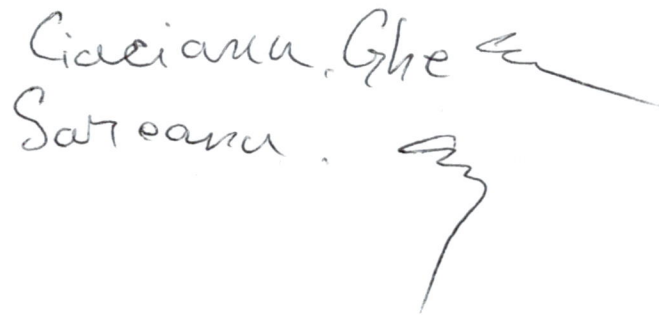 Ciaciana, Ghe
Sareanu.